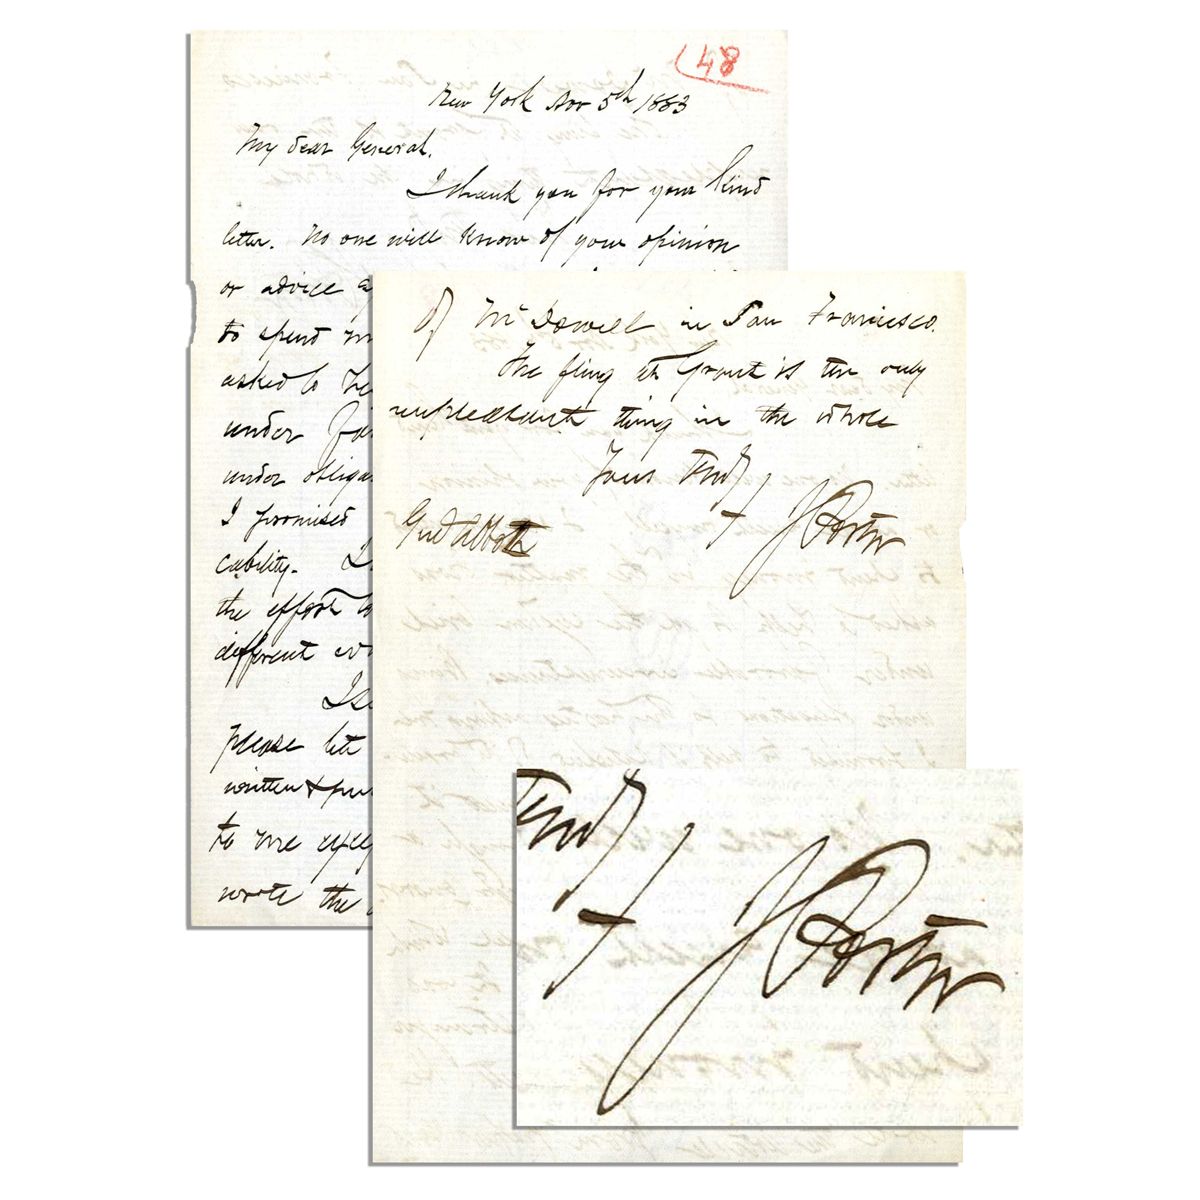 (48
New York Nov 5th 1883
My dear General.
I thank you for your kind
letter. No one will know of your opinion
or advice
to spend
asked to
under
under
I promised
cability. I
the effort to
different
please let
written &
to me
wrote the
of McDowell in San Francisco.
The fling at Grant is the only
unpleasant thing in the whole
Yours Truly
F J Porter
Genl Abbott
F J Porter